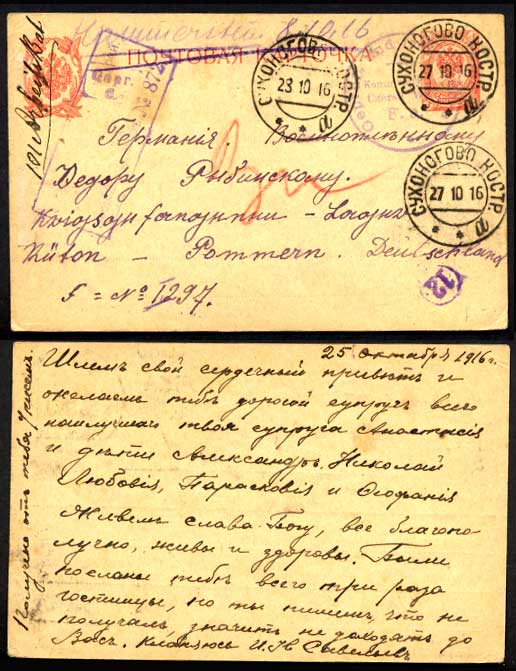 Hammerstein 8.1.1916
ПОЧТОВАЯ КАРТОЧКА
СУХОНОГОВО КОСТР.
23 10 16
а
СУХОНОГОВО КОСТР.
27 10 16
а
СУХОНОГОВО КОСТР.
27 10 16
а
№ 872
12
Германія. Военноплѣнному
Ѳедору Рыбинскому.
Büton - Pommern. Deutschland
f = № 1297.
25 октября 1916 г.
Шлемъ свой сердечный привѣтъ и
желаемъ тебѣ дорогой супругъ всего
наилучшаго твоя супруга Анастасія
и дѣти Александръ, Николай
Любовія, Парасковія и Ѳеофанія
Живемъ слава Богу, все благопо-
лучно, живы и здоровы. Были
посланы тебѣ всего три раза
гостинцы, но ты пишешь, что не
получалъ, значитъ не доходятъ до
Васъ. Кланяюсь И. Н. Савельевъ
Получено отъ тебя 7 писемъ.